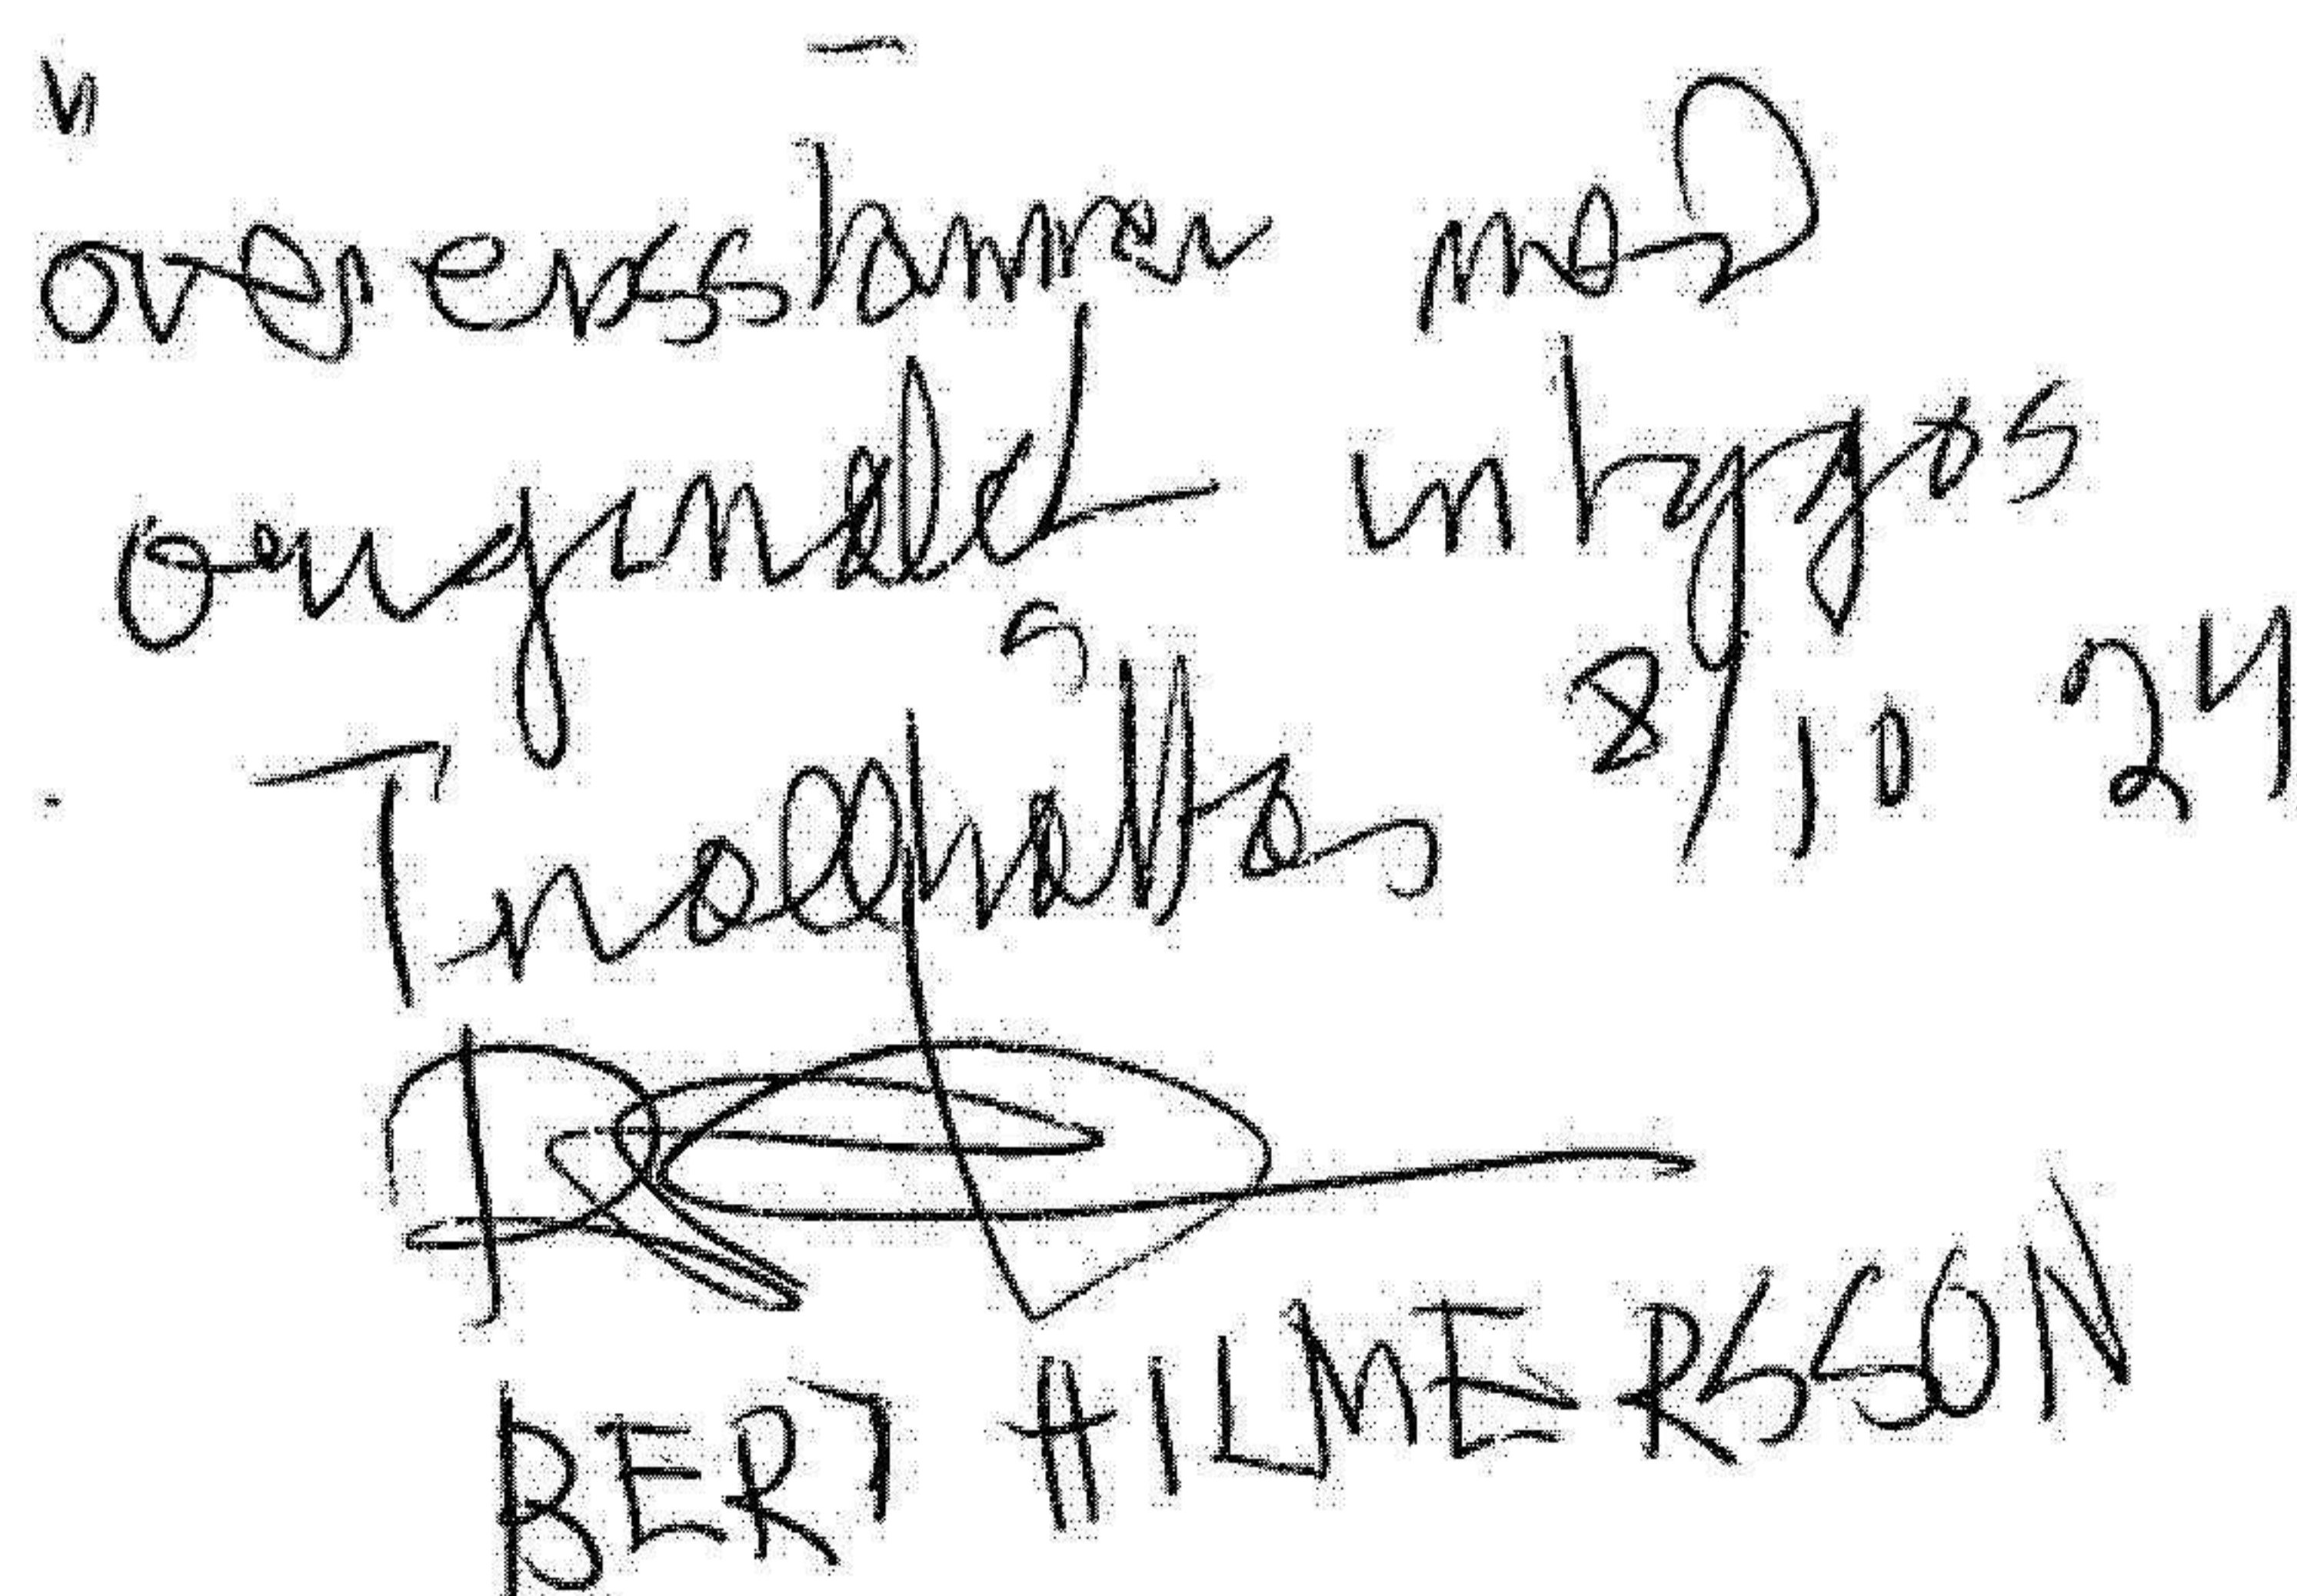 överensstämmer med
originalet intygas
Trollhättan 8/10 24
BERT HILMERSSON